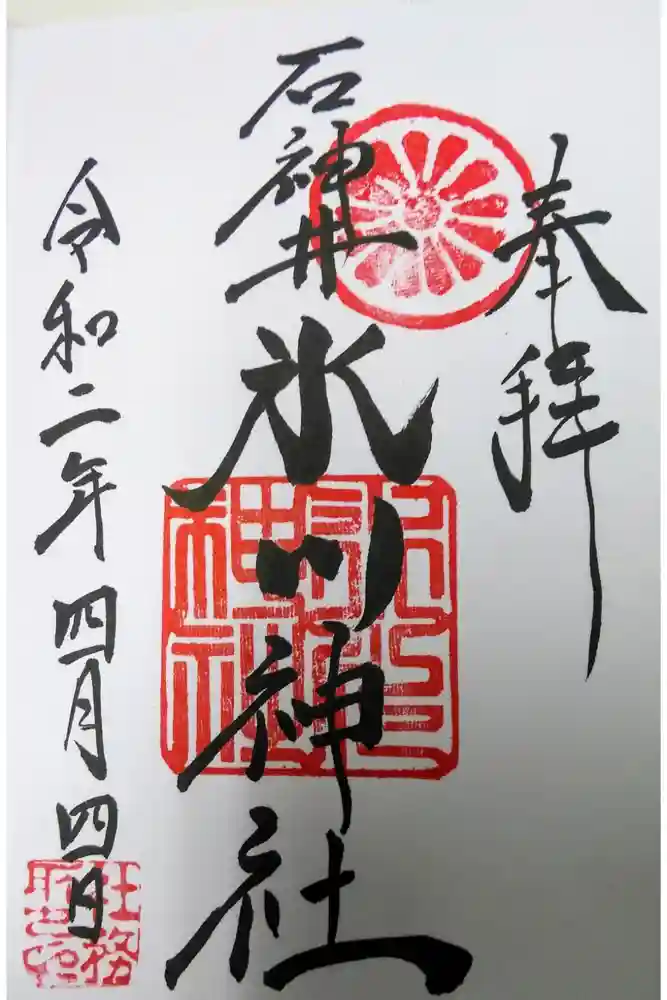 奉拝
石神井
氷川神社
令和二年四月四日
社務